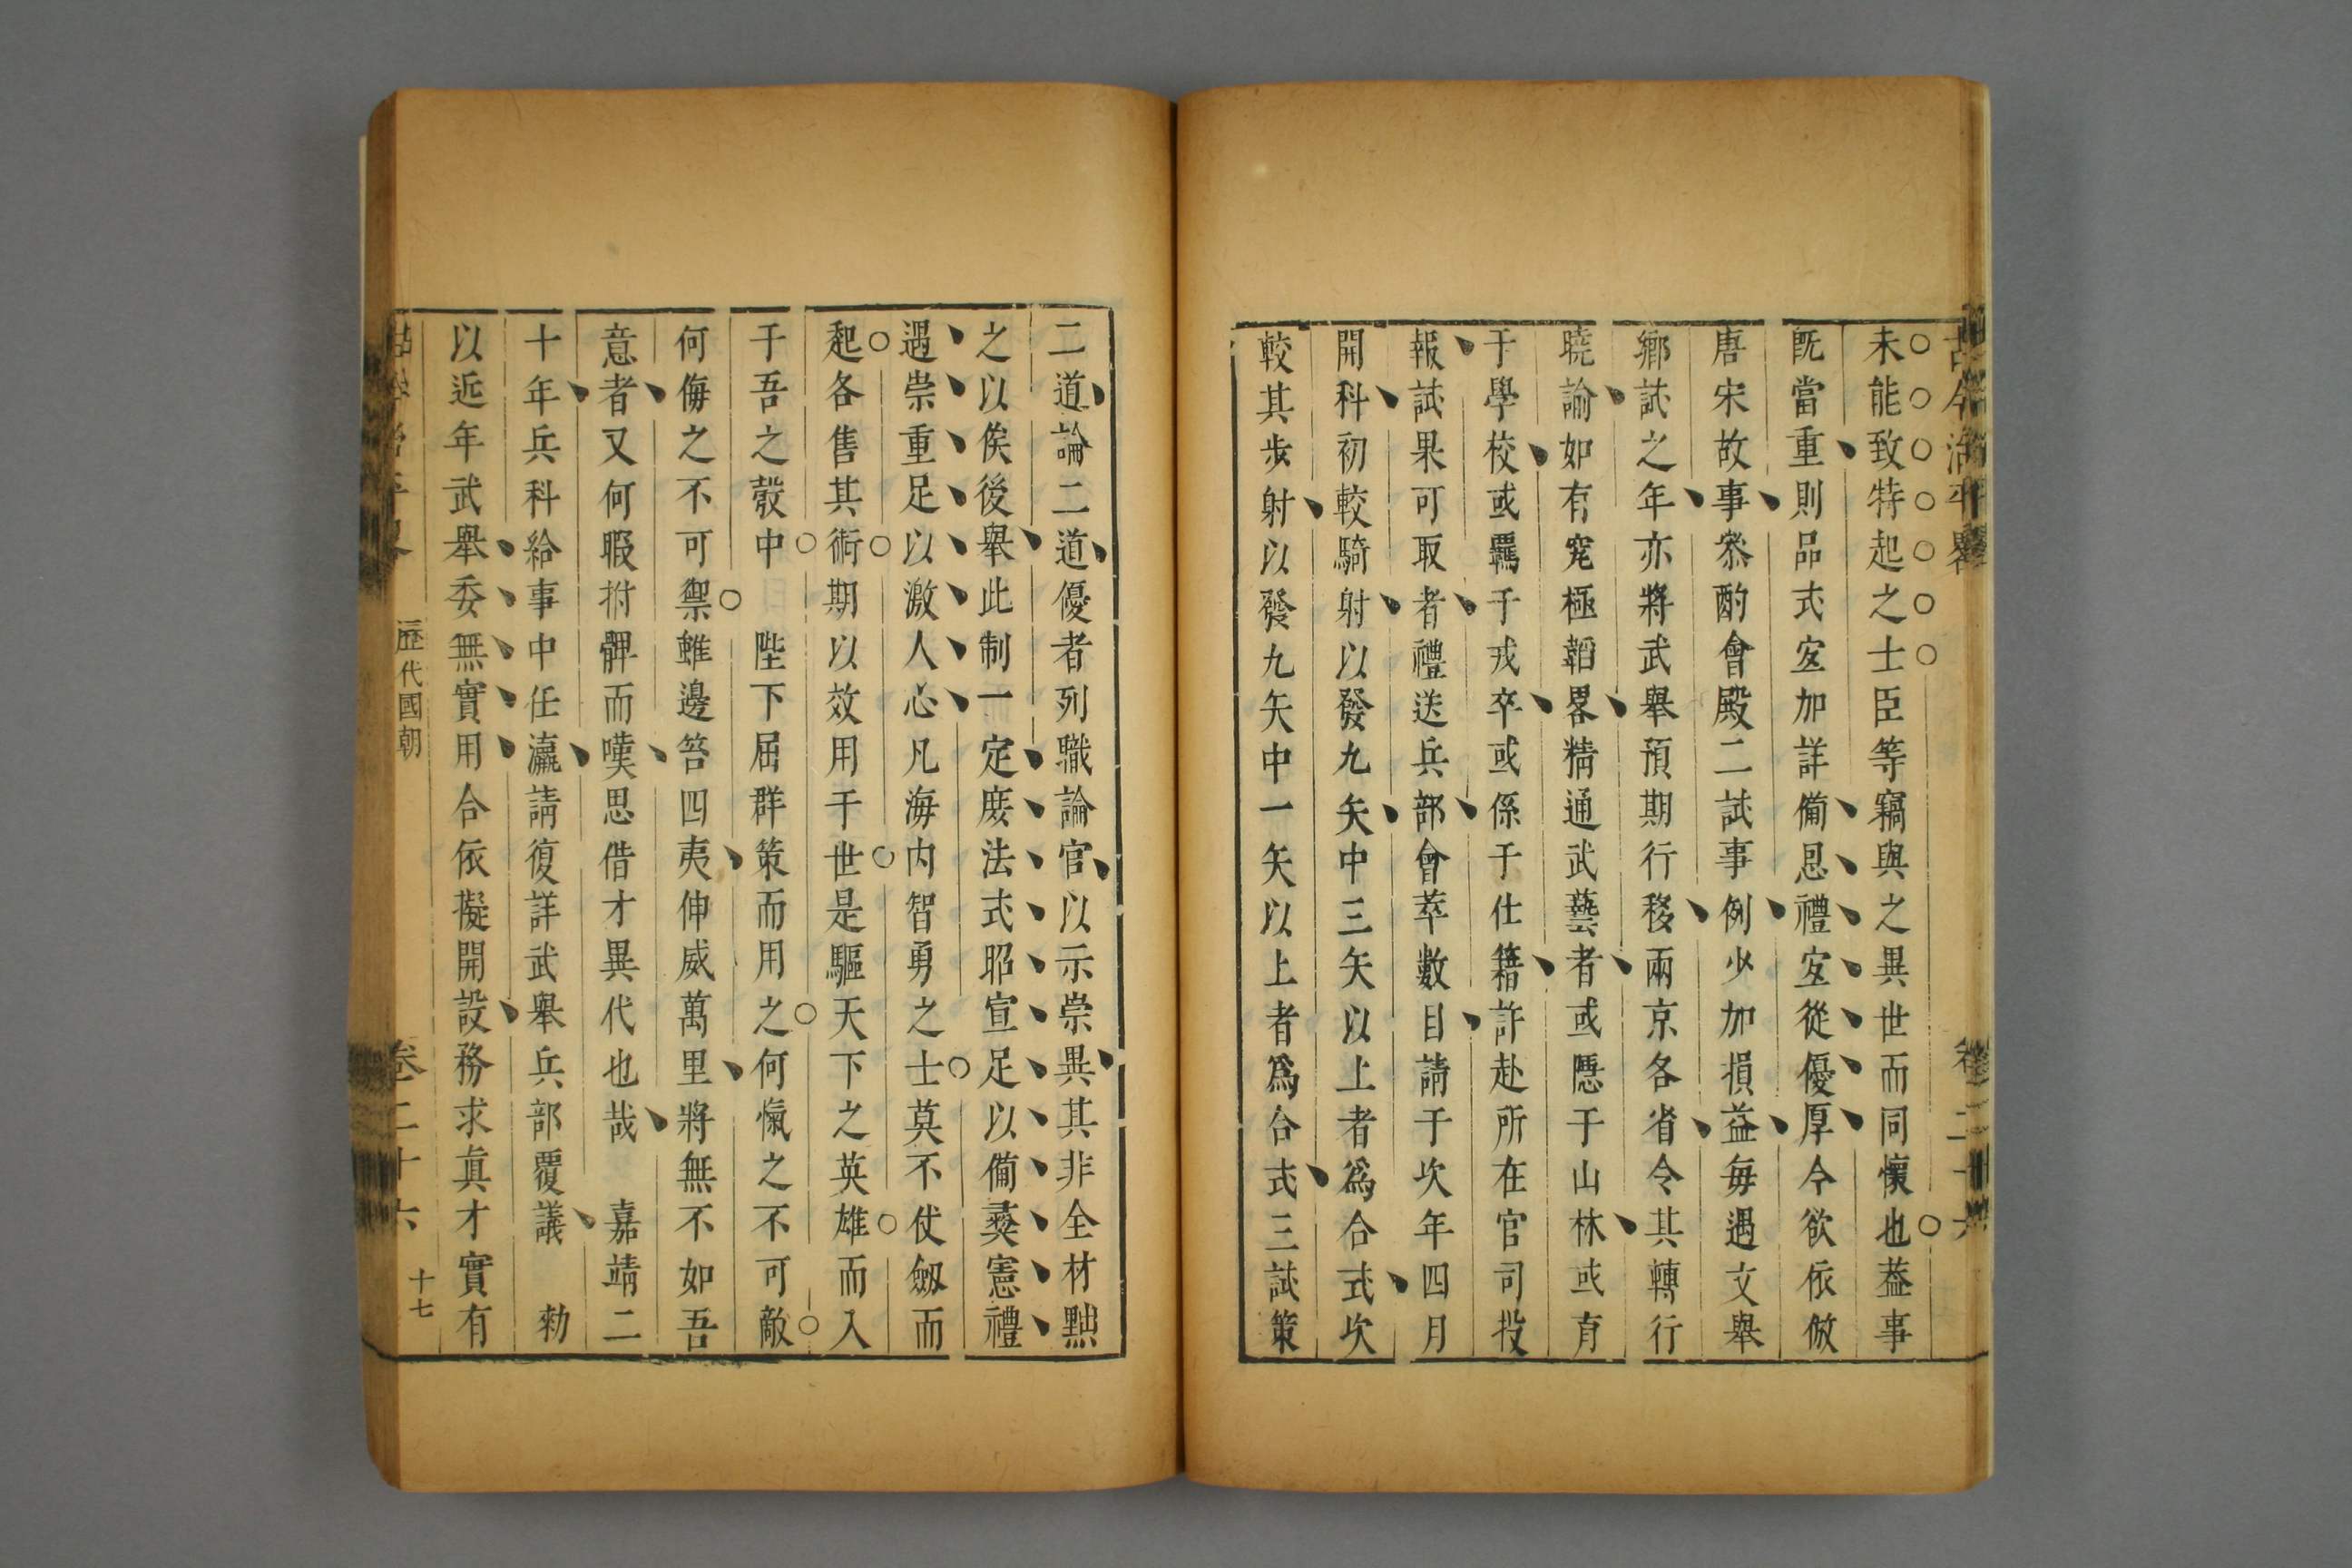 古今治平畧
卷二十六
未能致特起之士臣等竊與之異世而同懷也葢事
旣當重則品式宐加詳備恩禮宐從優厚今欲依倣
唐宋故事叅酌會殿二試事例少加損益每遇文舉
鄉試之年亦將武舉預期行移兩京各省令其轉行
曉諭如有究極韜畧精通武藝者或隱于山林或育
于學校或羈于戎卒或係于仕籍許赴所在官司投
報試果可取者禮送兵部會萃數目請于次年四月
開科初較騎射以發九矢中三矢以上者爲合式次
較其步射以發九矢中一矢以上者爲合式三試策
二道論二道優者列職論官以示崇異其非全材黜
之以俟後舉此制一定庻法式昭宣足以備彞憲禮
遇崇重足以激人心凡海内智勇之士莫不仗劔而
起各售其術期以效用于世是驅天下之英雄而入
于吾之彀中　陛下屈群策而用之何愾之不可敵
何侮之不可禦雖邊笞四夷伸威萬里將無不如吾
意者又何暇拊髀而嘆思借才異代也哉　嘉靖二
十年兵科給事中任瀛請復詳武舉兵部覆議　勑
以近年武舉委無實用合依擬開設務求眞才實有
歷代國朝
卷二十六
十七